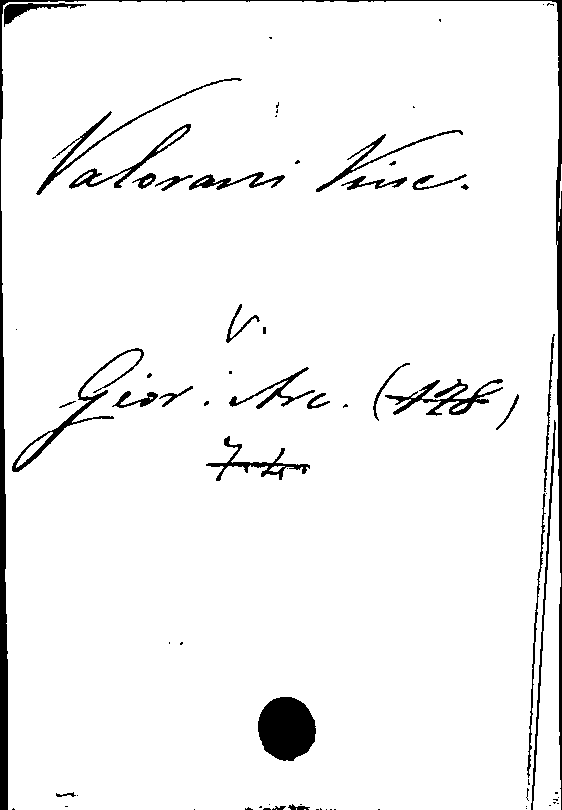 Valorani Vinc.
V.
Gior. Arc. (178)
7. L.